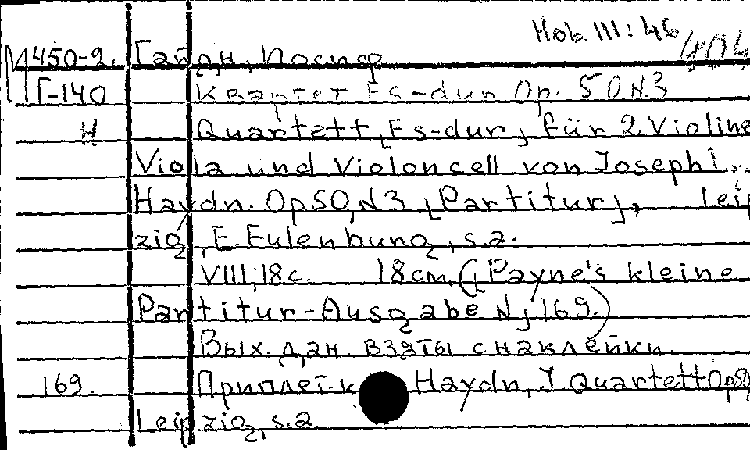 Hob. III: 46
404
М450-2. Гайдн, Иосиф
Г-140 Квартет Es-dur Op. 50 N.3
H Quartett, Es-dur, für 2. Violine
Viola und Violoncell von Joseph
Haydn. Op 50, N3 [Partitur], Leip
zig, E. Eulenburg, s.a.
VIII, 18 с. 18 см. (Payne's kleine
Partitur-Ausgabe N, 169.)
Вых. дан. взяты с наклейки.
169. Приплет. к Haydn, J. Quartett Op 50
Leipzig, s.a